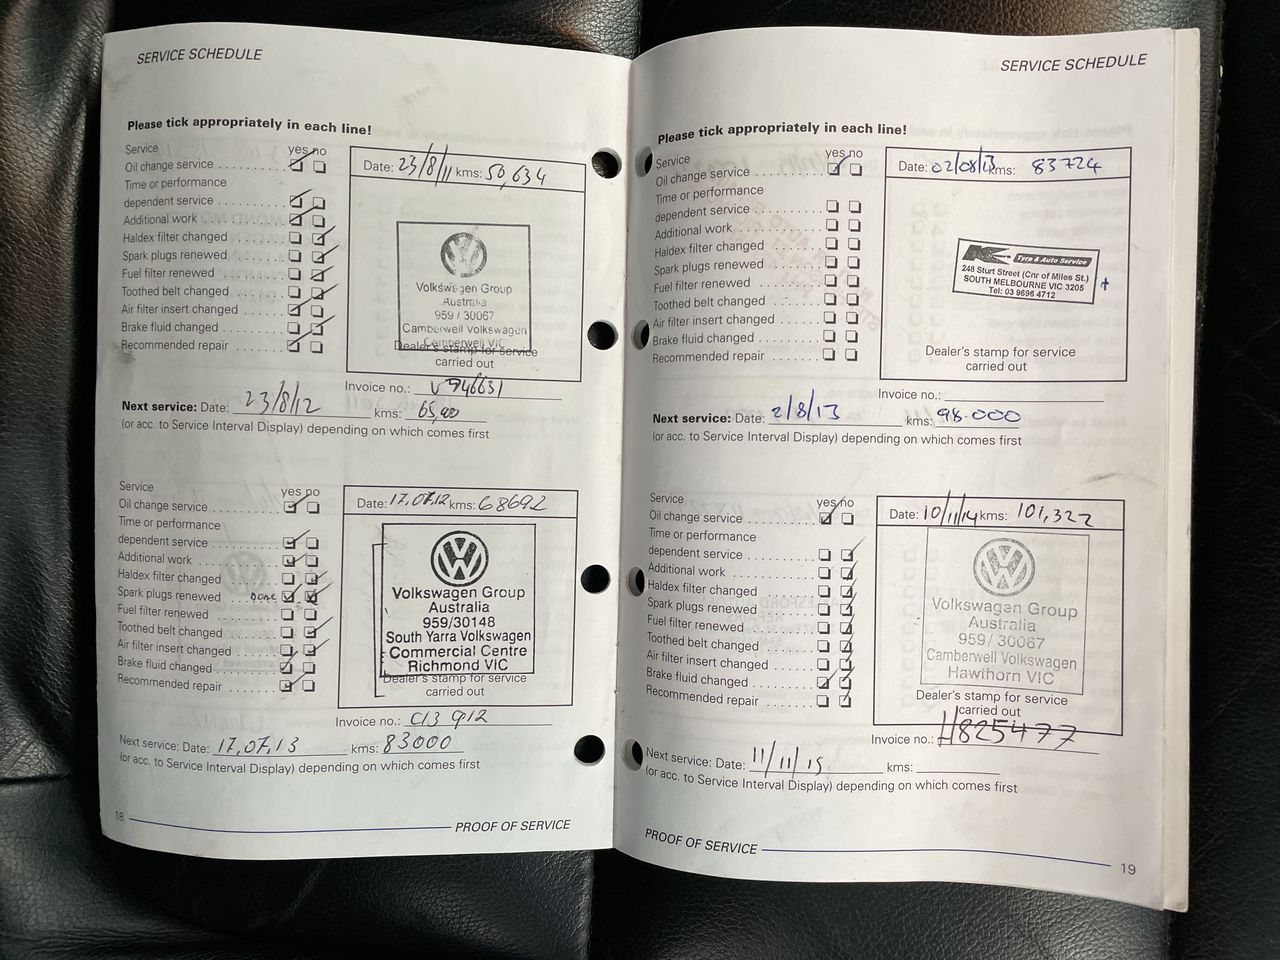 SERVICE SCHEDULE
Please tick appropriately in each line!
Service yes no
Oil change service
Time or performance
dependent service
Additional work
Haldex filter changed
Spark plugs renewed
Fuel filter renewed
Toothed belt changed
Air filter insert changed
Brake fluid changed
Recommended repair
Date: 23/8/11 kms: 50,634
Volkswagen Group
Australia
959 / 30067
Camberwell Volkswagen
Camberwell VIC
Dealer's stamp for service
carried out
Invoice no.: V746631
Next service: Date: 23/8/12 kms:
(or acc. to Service Interval Display) depending on which comes first
Service yes no
Oil change service
Time or performance
dependent service
Additional work
Haldex filter changed
Spark plugs renewed Done
Fuel filter renewed
Toothed belt changed
Air filter insert changed
Brake fluid changed
Recommended repair
Date: 17.07.12 kms: 68692
Volkswagen Group
Australia
959/30148
South Yarra Volkswagen
Commercial Centre
Richmond VIC
Dealer's stamp for service
carried out
Invoice no.: C13912
Next service: Date: 17.07.13 kms: 83000
(or acc. to Service Interval Display) depending on which comes first
18 PROOF OF SERVICE
SERVICE SCHEDULE
Please tick appropriately in each line!
Service yes no
Oil change service
Time or performance
dependent service
Additional work
Haldex filter changed
Spark plugs renewed
Fuel filter renewed
Toothed belt changed
Air filter insert changed
Brake fluid changed
Recommended repair
Date: 02/08/13 kms: 83724
K Tyre & Auto Service
248 Sturt Street (Cnr of Miles St.)
SOUTH MELBOURNE VIC 3205
Tel: 03 9696 4712
Dealer's stamp for service
carried out
Invoice no.:
Next service: Date: 2/8/13 kms: 98.000
(or acc. to Service Interval Display) depending on which comes first
Service yes no
Oil change service
Time or performance
dependent service
Additional work
Haldex filter changed
Spark plugs renewed
Fuel filter renewed
Toothed belt changed
Air filter insert changed
Brake fluid changed
Recommended repair
Date: 10/11/14 kms: 101,322
Volkswagen Group
Australia
959/ 30067
Camberwell Volkswagen
Hawthorn VIC
Dealer's stamp for service
carried out
Invoice no.: H825477
Next service: Date: 11/11/15 kms:
(or acc. to Service Interval Display) depending on which comes first
PROOF OF SERVICE 19